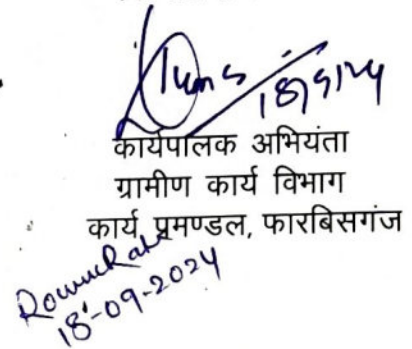 18/9/24
कार्यपालक अभियंता
ग्रामीण कार्य विभाग
कार्य प्रमण्डल, फारबिसगंज
18-09-2024